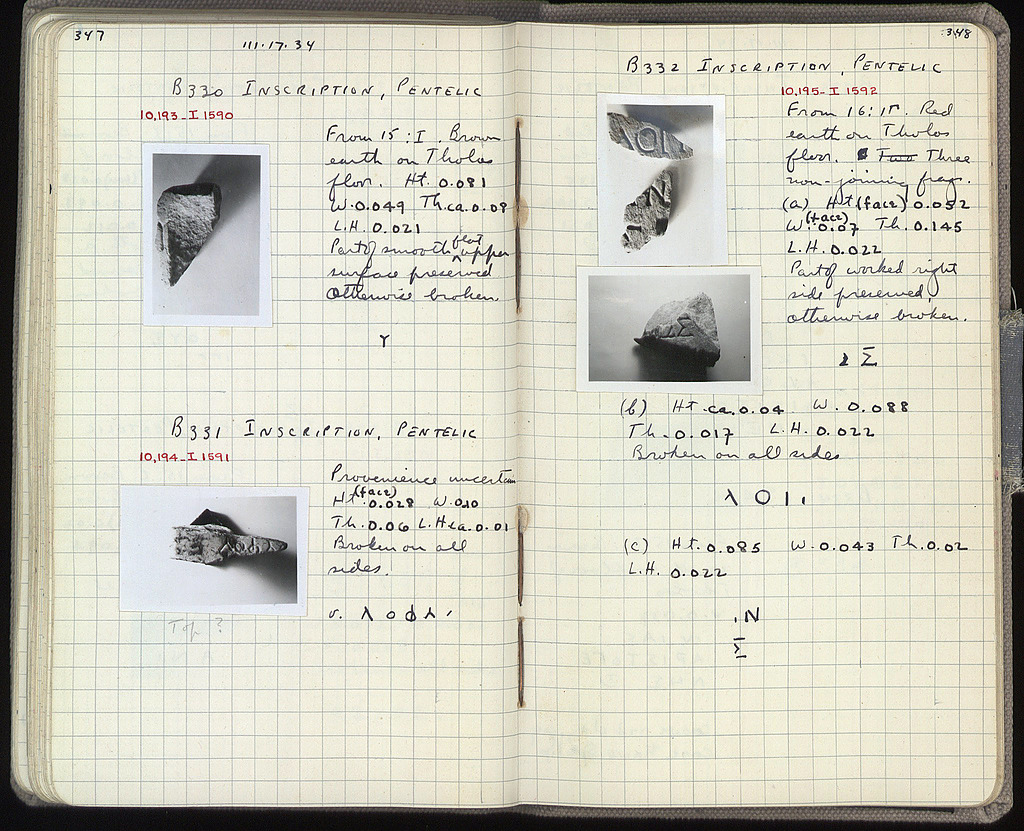 347
111·17·34
B330 INSCRIPTION, PENTELIC
10,193-I 1590
From 15:I. Brown
earth on Tholos
floor. Ht. 0.081
W. 0.049 Th. ca. 0.09
L.H. 0.021
Part of smooth flat upper
surface preserved
Otherwise broken.
Υ
B331 INSCRIPTION, PENTELIC
10,194-I 1591
Provenience uncertain
Ht. (face) 0.028 W. 0.10
Th. 0.06 L.H. ca. 0.01
Broken on all
sides.
v. λ ο φ λ ʹ
Top ?
348
B332 INSCRIPTION, PENTELIC
10,195-I 1592
From 16: Red
earth on Tholos
floor. Two Three
non-joining frags.
(a) Ht (face) 0.052
W. (face) 0.07 Th. 0.145
L.H. 0.022
Part of worked right
side preserved,
otherwise broken.
Σ
(b) Ht. ca. 0.04 W. 0.088
Th. 0.017 L.H. 0.022
Broken on all sides
λ Ο Ι ,
(c) Ht. 0.085 W. 0.043 Th. 0.02
L.H. 0.022
. Ν
Σ